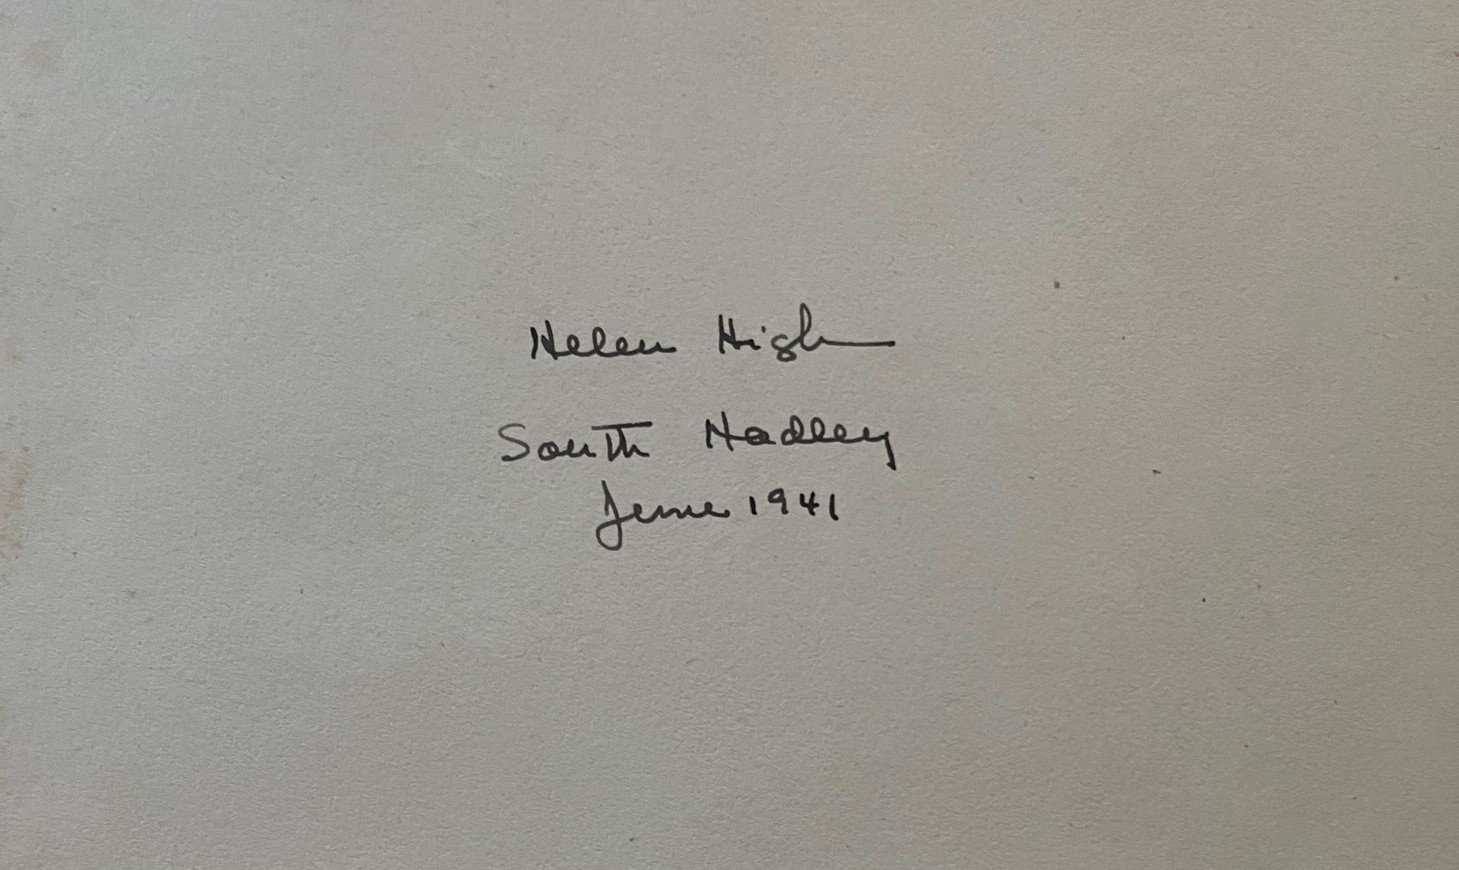 Helen High
South Hadley
June 1941